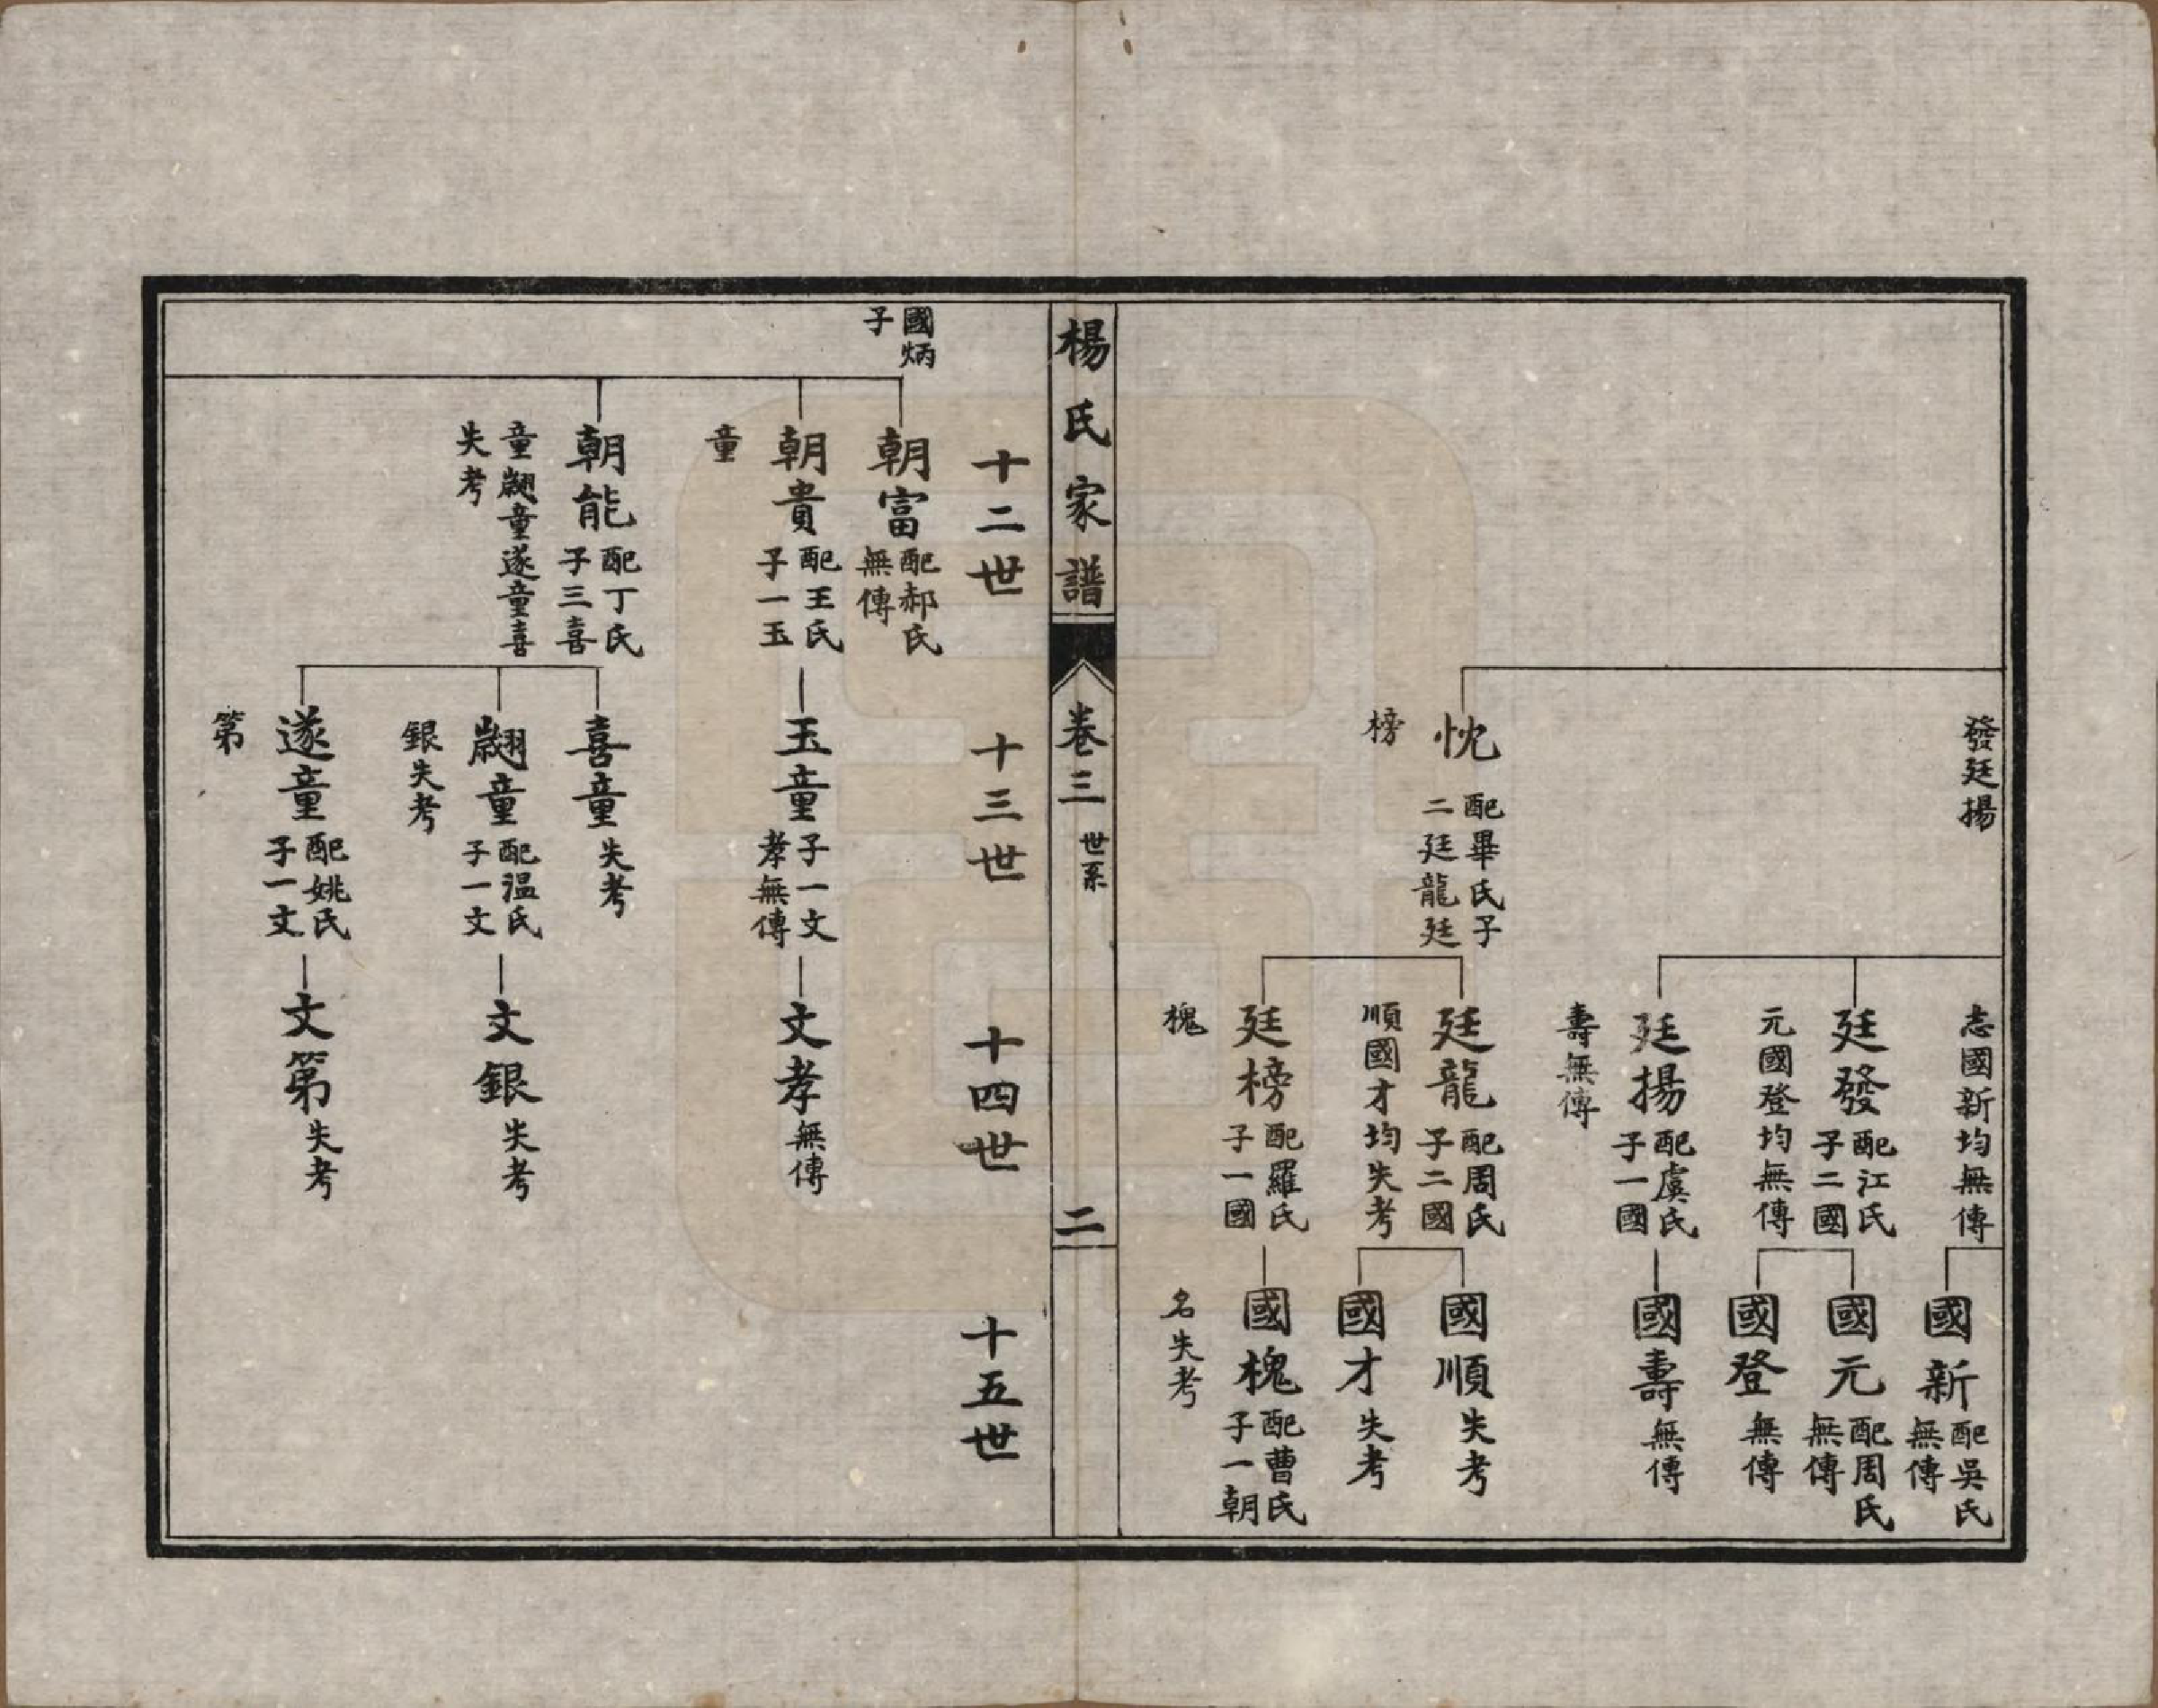 發廷揚
志國新均無傳
國新 配吳氏
無傳
廷發 配江氏
子二國
元國登均無傳
國元 配周氏
無傳
國登 無傳
廷揚 配虞氏
子一國
壽無傳
國壽 無傳
忱 配畢氏子
二廷龍廷
榜
廷龍 配周氏
子二國
順國才均失考
國順 失考
國才 失考
廷榜 配羅氏
子一國
槐
國槐 配曹氏
子一朝
名失考
楊氏家譜
卷三 世系
二
十二世
十三世
十四世
十五世
國炳
子
朝富 配郝氏
無傳
朝貴 配王氏
子一玉
童
玉童 子一文
孝無傳
文孝 無傳
朝能 配丁氏
子三喜
童翽童遂童喜
失考
喜童 失考
翽童 配温氏
子一文
銀失考
文銀 失考
遂童 配姚氏
子一文
第
文第 失考